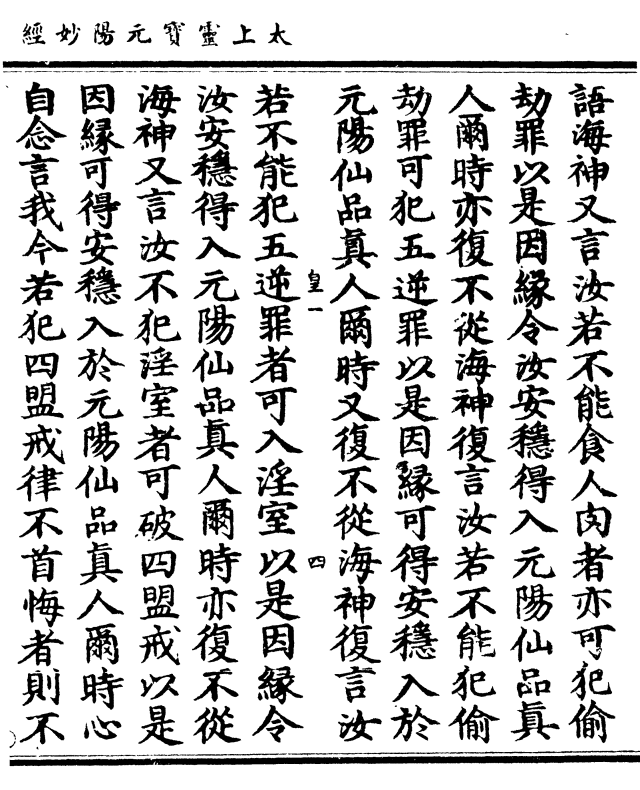 太上靈寶元陽妙經
語海神又言汝若不能食人肉者亦可犯偷
劫罪以是因緣令汝安穩得入元陽仙品真
人爾時亦復不從海神復言汝若不能犯偷
劫罪可犯五逆罪以是因緣可得安穩入於
元陽仙品真人爾時又復不從海神復言汝
皇一 四
若不能犯五逆罪者可入淫室以是因緣令
汝安穩得入元陽仙品真人爾時亦復不從
海神又言汝不犯淫室者可破四盟戒以是
因緣可得安穩入於元陽仙品真人爾時心
自念言我今若犯四盟戒律不首悔者則不